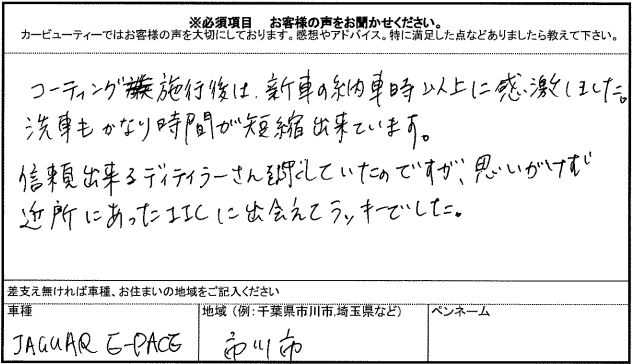 ※必須項目　お客様の声をお聞かせください。
カービューティーではお客様の声を大切にしております。感想やアドバイス。特に満足した点などありましたら教えて下さい。
コーティング施行後は、新車の納車時以上に感激しました。
洗車もかなり時間が短縮出来ています。
信頼出来るディティラーさんを していたのですが、思いがけず
近所にあったIICに出会えてラッキーでした。
差支え無ければ車種、お住まいの地域をご記入ください
車種
地域（例：千葉県市川市.埼玉県など）
ペンネーム
JAGUAR E-PACE
市川市